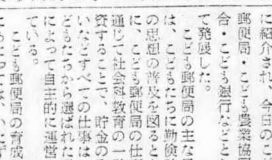 に紹介され、今日のこ
郵便局・こども農業協同
合・こども銀行などとし
て発展した。
こども郵便局の主な
は、こどもたちに勤倹
の思想の普及を図ると
に、こども郵便局の仕
通じて社会科教育の一
資することで、貯金の
いなどすべての仕事は
どもたちから選ばれた
によって自主的に運営
ている。
こども郵便局の育成